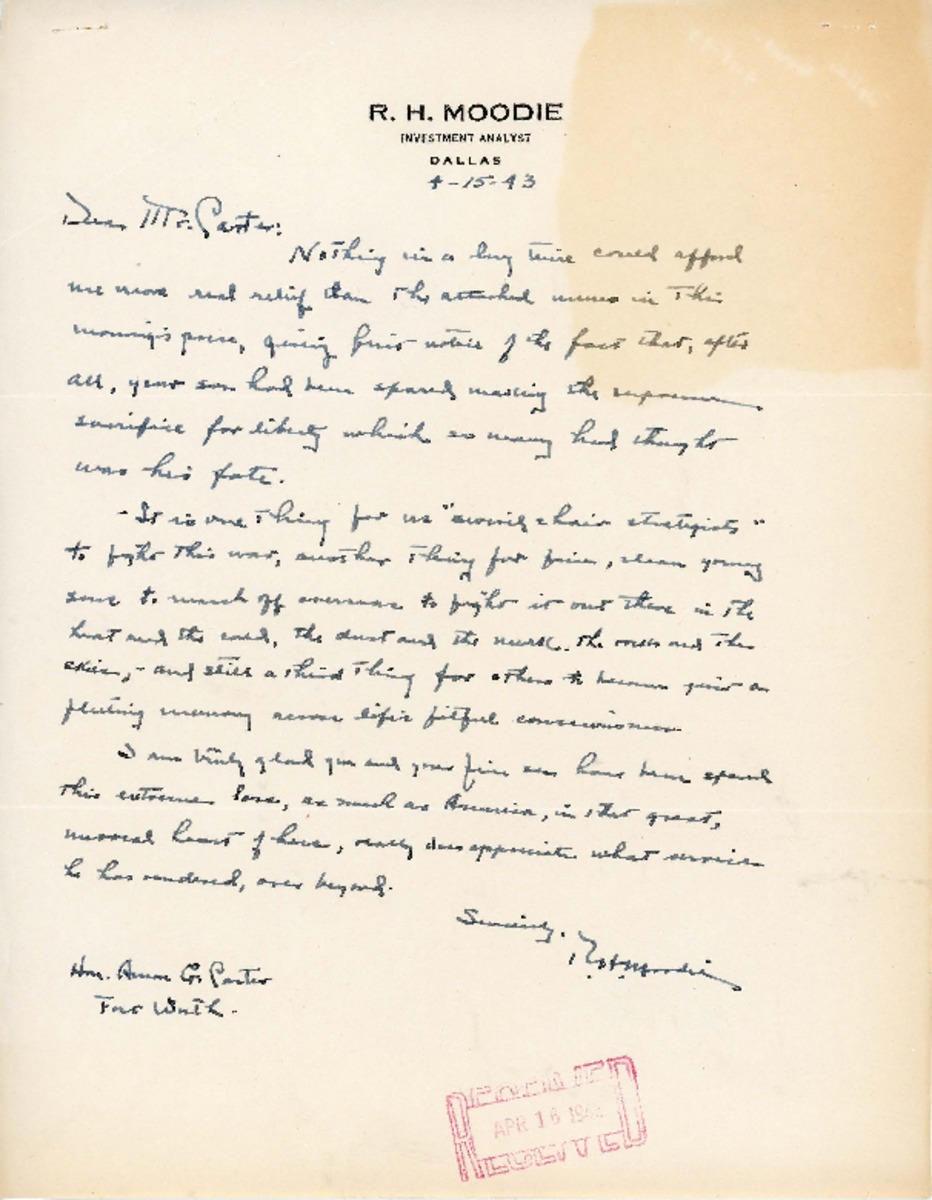 R. H. MOODIE
INVESTMENT ANALYST
DALLAS
4-15-43
Dear Mr. Carter:
Nothing in a long time could afford
me more real relief than the attached news in this
morning's press, giving first notice of the fact that, after
all, your son had been spared making the supreme
sacrifice for liberty which so many had thought
was his fate.
- It is one thing for us "swivel chair strategists"
to fight this war, another thing for fine, clean young
sons to march off overseas to fight it out there in the
heat and the cold, the dust and the murk, the and the
skies, - and still a third thing for others to become just a
fleeting memory across life's fitful consciousness.
I am truly glad you and your fine son have been spared
this extreme loss, as much as America, in that great,
heart of hers, really does appreciate what service
he has rendered, over beyond.
Sincerely,
R H Moodie
Hon. Amon G. Carter
Fort Worth.
APR 16 194